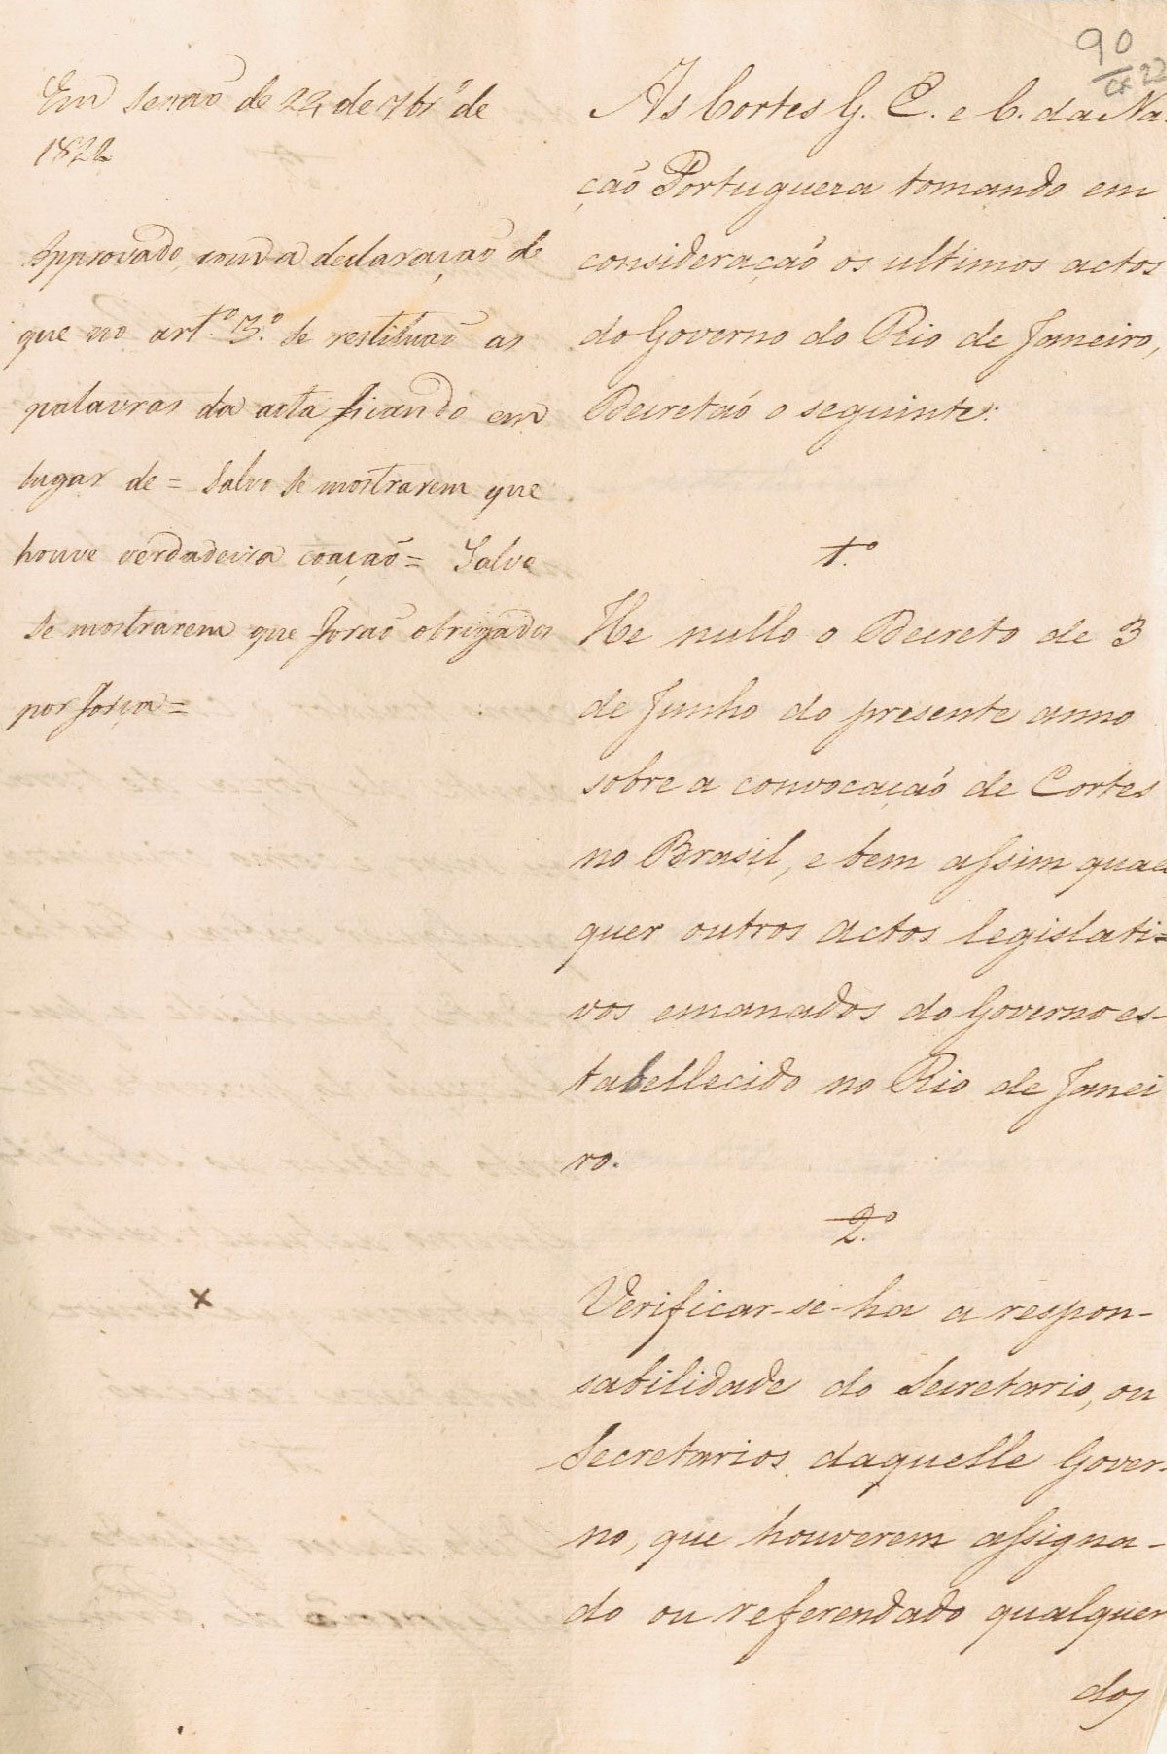 90
Em Sessão de 24 de 7brº de
1822
Approvado, com a declaração de
que no artº 3.º se restituão as
palavras da acta ficando em
lugar de = Salvo se mostrarem que
houve verdadeira coação = Salvo
se mostrarem que forão obrigados
por força =
As Cortes G. E. e C. da Na-
ção Portugueza tomando em
consideração os ultimos actos
do Governo do Rio de Janeiro,
Decretaõ o seguinte:
1.º
He nullo o Decreto de 3
de Junho do presente anno
sobre a convocação de Cortes
no Brasil, e bem assim quaes
quer outros actos legislati=
vos emanados do Governo es-
tabellecido no Rio de Janei
ro.
2.º
Verificar-se-ha a respon-
sabilidade do Secretario, ou
Secretarios daquelle Gover-
no, que houverem assigna-
do ou referendado qualquer
dos